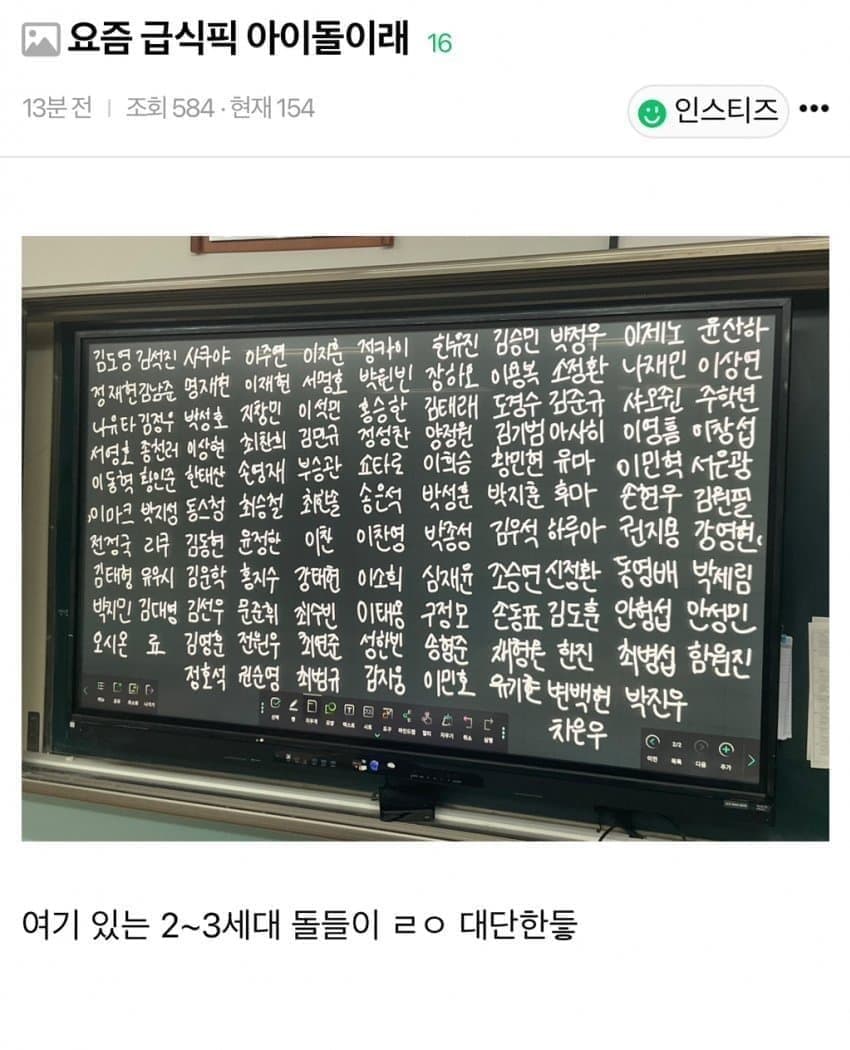 요즘 급식픽 아이돌이래 16
13분 전 | 조회 584 · 현재 154
인스티즈
김도영 김석진 사쿠야 이주연 이지훈 정카이 한유진 김승민 박정우 이제노 윤산하
정재현 김남준 명재현 이재현 서명호 박원빈 장하오 이용복 소정환 나재민 이상연
나유타 김정우 박성호 지창민 이석민 홍승한 김태래 도경수 김준규 샤오쥔 주학년
서영호 종천러 이상현 최찬희 김민규 정성찬 양정원 김기범 아사히 이영흠 이창섭
이동혁 황인준 한태산 손영재 부승관 쇼타로 이희승 황민현 유마 이민혁 서은광
이마크 박지성 동스청 최승철 최한솔 송은석 박성훈 박지훈 후마 손현우 김원필
전정국 리쿠 김동현 윤정한 이찬 이찬영 박종성 김우석 하루아 권지용 강영현
김태형 유우시 김운학 홍지수 강태현 이소희 심재윤 조승연 신정환 동영배 박제림
박지민 김대영 김선우 문준휘 최수빈 이태용 구정모 손동표 김도훈 안형섭 안성민
오시온 료 김영훈 전원우 최연준 성한빈 송형준 한진 최병섭 함원진
정호석 권순영 최범규 김지웅 이민호 유기현 변백현 박진우
차은우
선택 펜 지우개 도형 텍스트 시트 도구 마인드맵 멀티 지우기 취소 설정
이전 2/2 목록 다음 추가
여기 있는 2~3세대 돌들이 ㄹㅇ 대단한듷